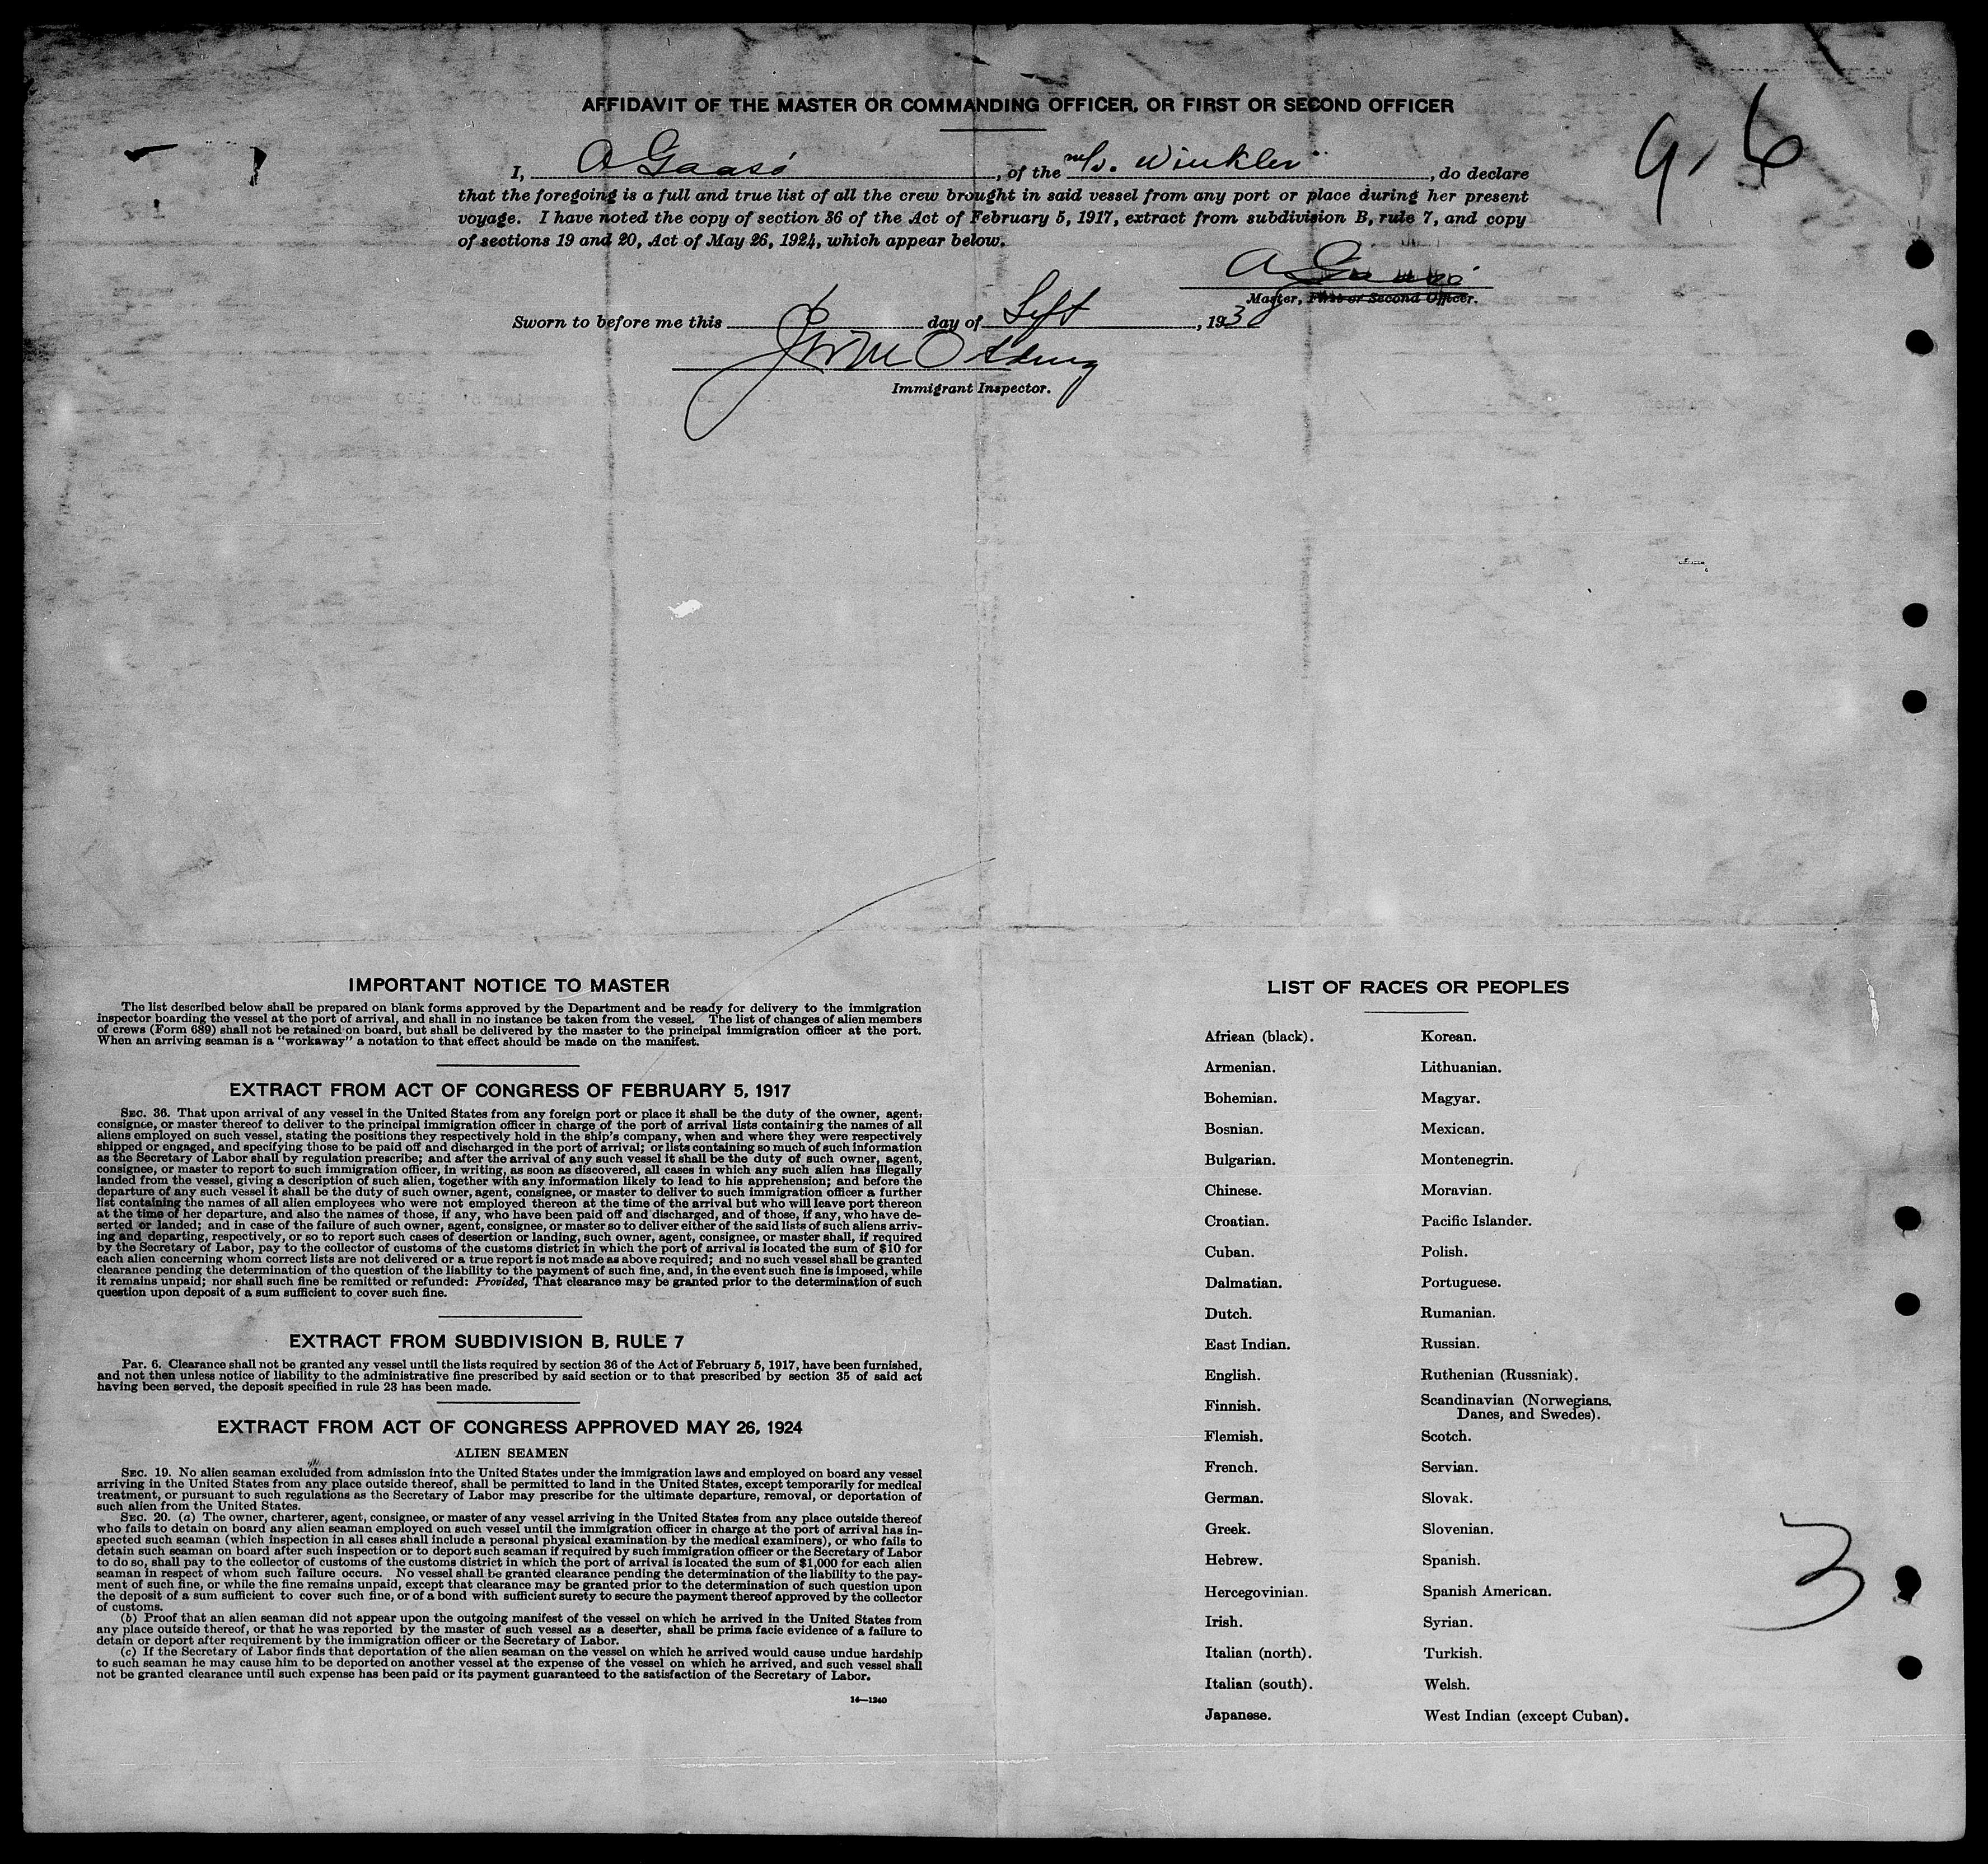 AFFIDAVIT OF THE MASTER OR COMMANDING OFFICER, OR FIRST OR SECOND OFFICER
9, 6
I, A Gaasö, of the m/s. Winkler, do declare
that the foregoing is a full and true list of all the crew brought in said vessel from any port or place during her present
voyage. I have noted the copy of section 36 of the Act of February 5, 1917, extract from subdivision B, rule 7, and copy
of sections 19 and 20, Act of May 26, 1924, which appear below.
A Gaasö
Master, First or Second Officer.
Sworn to before me this day of Sept, 193
Immigrant Inspector.
IMPORTANT NOTICE TO MASTER
The list described below shall be prepared on blank forms approved by the Department and be ready for delivery to the immigration
inspector boarding the vessel at the port of arrival, and shall in no instance be taken from the vessel. The list of changes of alien members
of crews (Form 689) shall not be retained on board, but shall be delivered by the master to the principal immigration officer at the port.
When an arriving seaman is a "workaway" a notation to that effect should be made on the manifest.
EXTRACT FROM ACT OF CONGRESS OF FEBRUARY 5, 1917
SEC. 36. That upon arrival of any vessel in the United States from any foreign port or place it shall be the duty of the owner, agent,
consignee, or master thereof to deliver to the principal immigration officer in charge of the port of arrival lists containing the names of all
aliens employed on such vessel, stating the positions they respectively hold in the ship's company, when and where they were respectively
shipped or engaged, and specifying those to be paid off and discharged in the port of arrival; or lists containing so much of such information
as the Secretary of Labor shall by regulation prescribe; and after the arrival of any such vessel it shall be the duty of such owner, agent,
consignee, or master to report to such immigration officer, in writing, as soon as discovered, all cases in which any such alien has illegally
landed from the vessel, giving a description of such alien, together with any information likely to lead to his apprehension; and before the
departure of any such vessel it shall be the duty of such owner, agent, consignee, or master to deliver to such immigration officer a further
list containing the names of all alien employees who were not employed thereon at the time of the arrival but who will leave port thereon
at the time of her departure, and also the names of those, if any, who have been paid off and discharged, and of those, if any, who have de-
serted or landed; and in case of the failure of such owner, agent, consignee, or master so to deliver either of the said lists of such aliens arriv-
ing and departing, respectively, or so to report such cases of desertion or landing, such owner, agent, consignee, or master shall, if required
by the Secretary of Labor, pay to the collector of customs of the customs district in which the port of arrival is located the sum of $10 for
each alien concerning whom correct lists are not delivered or a true report is not made as above required; and no such vessel shall be granted
clearance pending the determination of the question of the liability to the payment of such fine, and, in the event such fine is imposed, while
it remains unpaid; nor shall such fine be remitted or refunded: Provided, That clearance may be granted prior to the determination of such
question upon deposit of a sum sufficient to cover such fine.
EXTRACT FROM SUBDIVISION B, RULE 7
Par. 6. Clearance shall not be granted any vessel until the lists required by section 36 of the Act of February 5, 1917, have been furnished,
and not then unless notice of liability to the administrative fine prescribed by said section or to that prescribed by section 35 of said act
having been served, the deposit specified in rule 23 has been made.
EXTRACT FROM ACT OF CONGRESS APPROVED MAY 26, 1924
ALIEN SEAMEN
SEC. 19. No alien seaman excluded from admission into the United States under the immigration laws and employed on board any vessel
arriving in the United States from any place outside thereof, shall be permitted to land in the United States, except temporarily for medical
treatment, or pursuant to such regulations as the Secretary of Labor may prescribe for the ultimate departure, removal, or deportation of
such alien from the United States.
SEC. 20. (a) The owner, charterer, agent, consignee, or master of any vessel arriving in the United States from any place outside thereof
who fails to detain on board any alien seaman employed on such vessel until the immigration officer in charge at the port of arrival has in-
spected such seaman (which inspection in all cases shall include a personal physical examination by the medical examiners), or who fails to
detain such seaman on board after such inspection or to deport such seaman if required by such immigration officer or the Secretary of Labor
to do so, shall pay to the collector of customs of the customs district in which the port of arrival is located the sum of $1,000 for each alien
seaman in respect of whom such failure occurs. No vessel shall be granted clearance pending the determination of the liability to the pay-
ment of such fine, or while the fine remains unpaid, except that clearance may be granted prior to the determination of such question upon
the deposit of a sum sufficient to cover such fine, or of a bond with sufficient surety to secure the payment thereof approved by the collector
of customs.
(b) Proof that an alien seaman did not appear upon the outgoing manifest of the vessel on which he arrived in the United States from
any place outside thereof, or that he was reported by the master of such vessel as a deserter, shall be prima facie evidence of a failure to
detain or deport after requirement by the immigration officer or the Secretary of Labor.
(c) If the Secretary of Labor finds that deportation of the alien seaman on the vessel on which he arrived would cause undue hardship
to such seaman he may cause him to be deported on another vessel at the expense of the vessel on which he arrived, and such vessel shall
not be granted clearance until such expense has been paid or its payment guaranteed to the satisfaction of the Secretary of Labor.
14—1240
LIST OF RACES OR PEOPLES
African (black). Korean.
Armenian. Lithuanian.
Bohemian. Magyar.
Bosnian. Mexican.
Bulgarian. Montenegrin.
Chinese. Moravian.
Croatian. Pacific Islander.
Cuban. Polish.
Dalmatian. Portuguese.
Dutch. Rumanian.
East Indian. Russian.
English. Ruthenian (Russniak).
Finnish. Scandinavian (Norwegians,
Danes, and Swedes).
Flemish. Scotch.
French. Servian.
German. Slovak.
Greek. Slovenian.
Hebrew. Spanish.
Hercegovinian. Spanish American.
Irish. Syrian.
Italian (north). Turkish.
Italian (south). Welsh.
Japanese. West Indian (except Cuban).
3